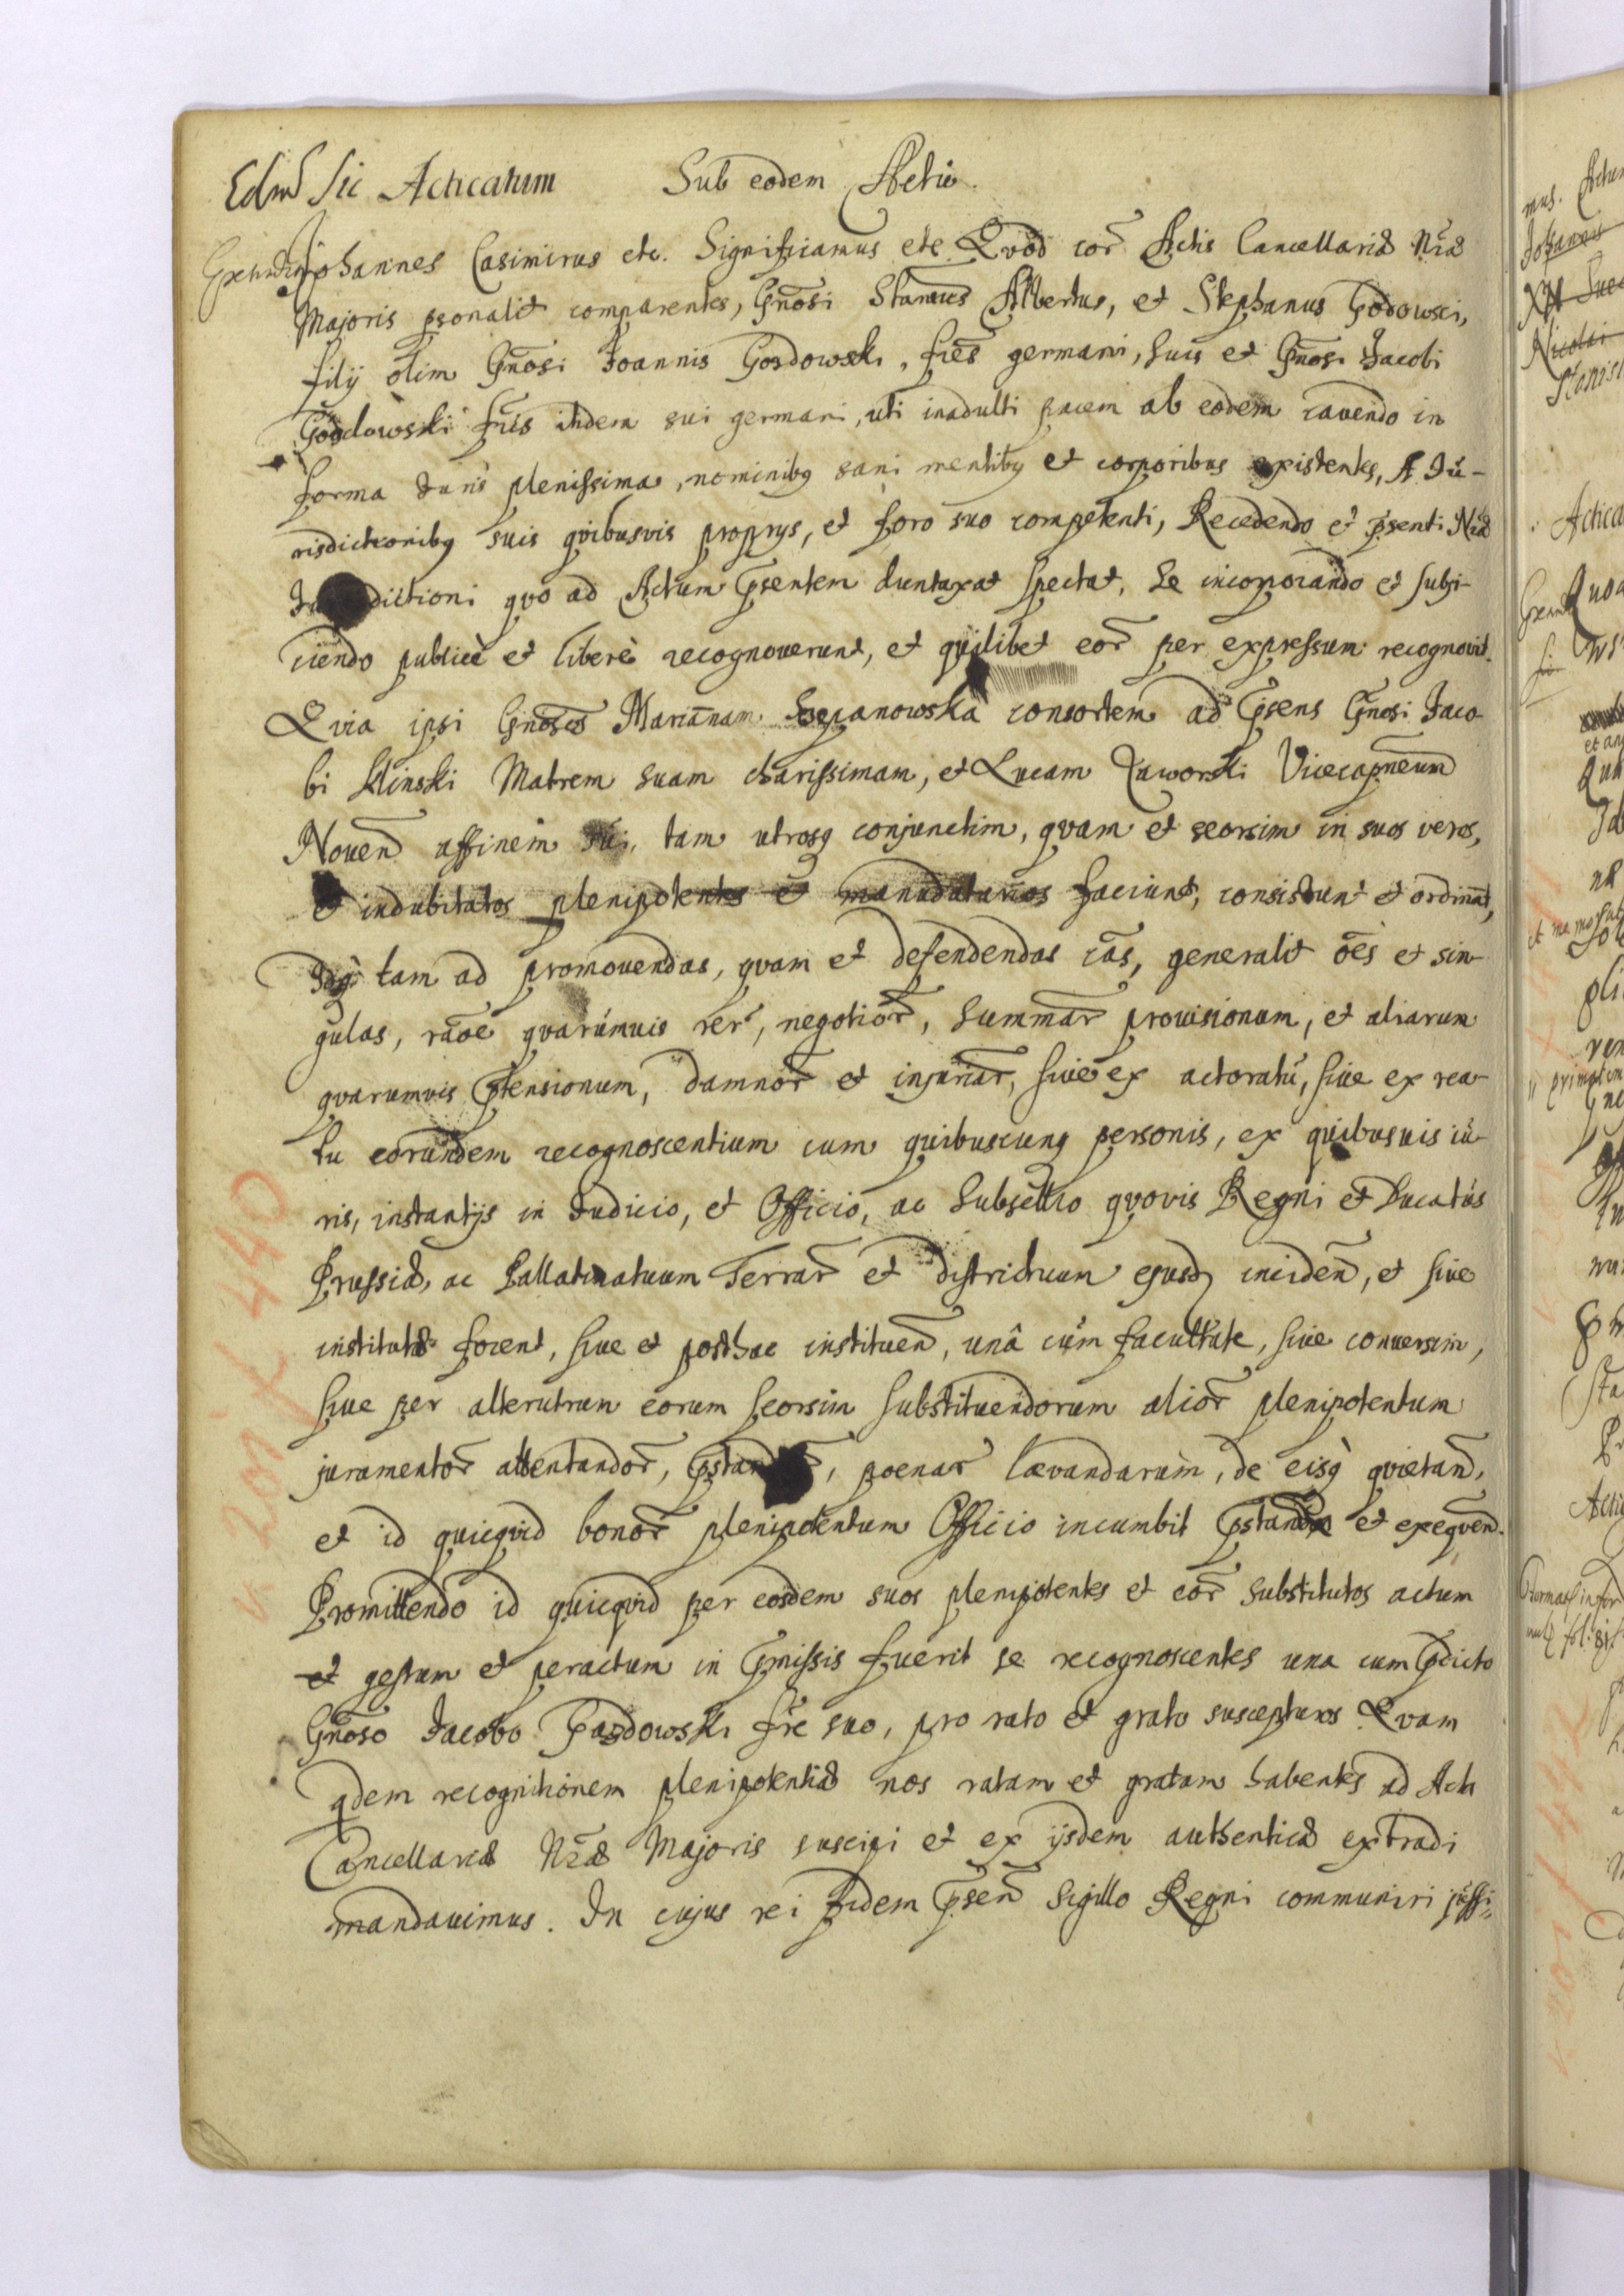 Sub eodem Actu.
Sic Acticatum
Johannes Casimirus etc. Significamus etc Qvod cor Actis Cancellariæ Nræ
Majoris psonalit comparentes, Gnosi Albertus, et Stephanus
filij olim Gnosi Joannis Gosdowski, fres germani, suis et Gnosi Jacobi
fris itidem sui germani, uti inadulti pacem ab eodem cavendo in
forma Juris plenissima, nominiby sani mentiby et corporibus existentes, A Ju-
risdictioniby suis qvibusvis proprijs, et foro suo competenti, Recedendo et psenti Nræ
dictioni qvo ad Actum psentem duntaxat spectat, se incorporando et subji-
ciendo publicè et liberè recognoverunt, et qvilibet eor per expressum recognovit.
Qvia ipsi Gnosos Mariannam consortem ad psens Gnosi Jaco-
bi Matrem suam charissimam, et Lucam Jaworski Vicecapneum
Noven affinem sui, tam utrosq conjunctim, qvam et seorsim in suos veros,
et indubitatos plenipotentes et manudatarios faciunt, consistunt et ordināt,
tam ad promovendas, qvam et defendendas cās, generalit oēs et sin-
gulas, rāoe qvarumvis rer, negotior, Summar provisionum, et aliarum
qvarumvis ptensionum, damnor et injuriar, sive ex actoratu, sive ex rea-
tu eorundem recognoscentium cum quibuscunq personis, ex quibusvis ju-
ris, instantijs in Judicio, et Officio, ac Subsellio qvovis Regni et Ducatus
Prussiæ, ac Pallatinatuum Terrar et districtuum ejusd inciden, et sive
institutæ forent, sive et posthac instituen, unâ cum facultate, sive conversim,
sive per alterutrum eorum seorsim substituendorum alior plenipotentum
juramentor attentandor, poenar lævandarum, de eisq qvietan,
et id quicqvid bonor plenipotentum Officio incumbit pstand et exeqven.
Promittendo id quicqvid per eosdem suos plenipotentes et eor substitutos actum
et gestum et peractum in pmissis fuerit se recognoscentes una cum pdicto
Gnoso Jacobo fre suo, pro rato et grato suscepturos Qvam
qdem recognitionem plenipotentiæ nos ratam et gratam habentes ad Acta
Cancellariæ Nræ Majoris suscipi et ex ijsdem authenticæ extradi
mandavimus. In cujus rei fidem psen Sigillo Regni communiri jussi-